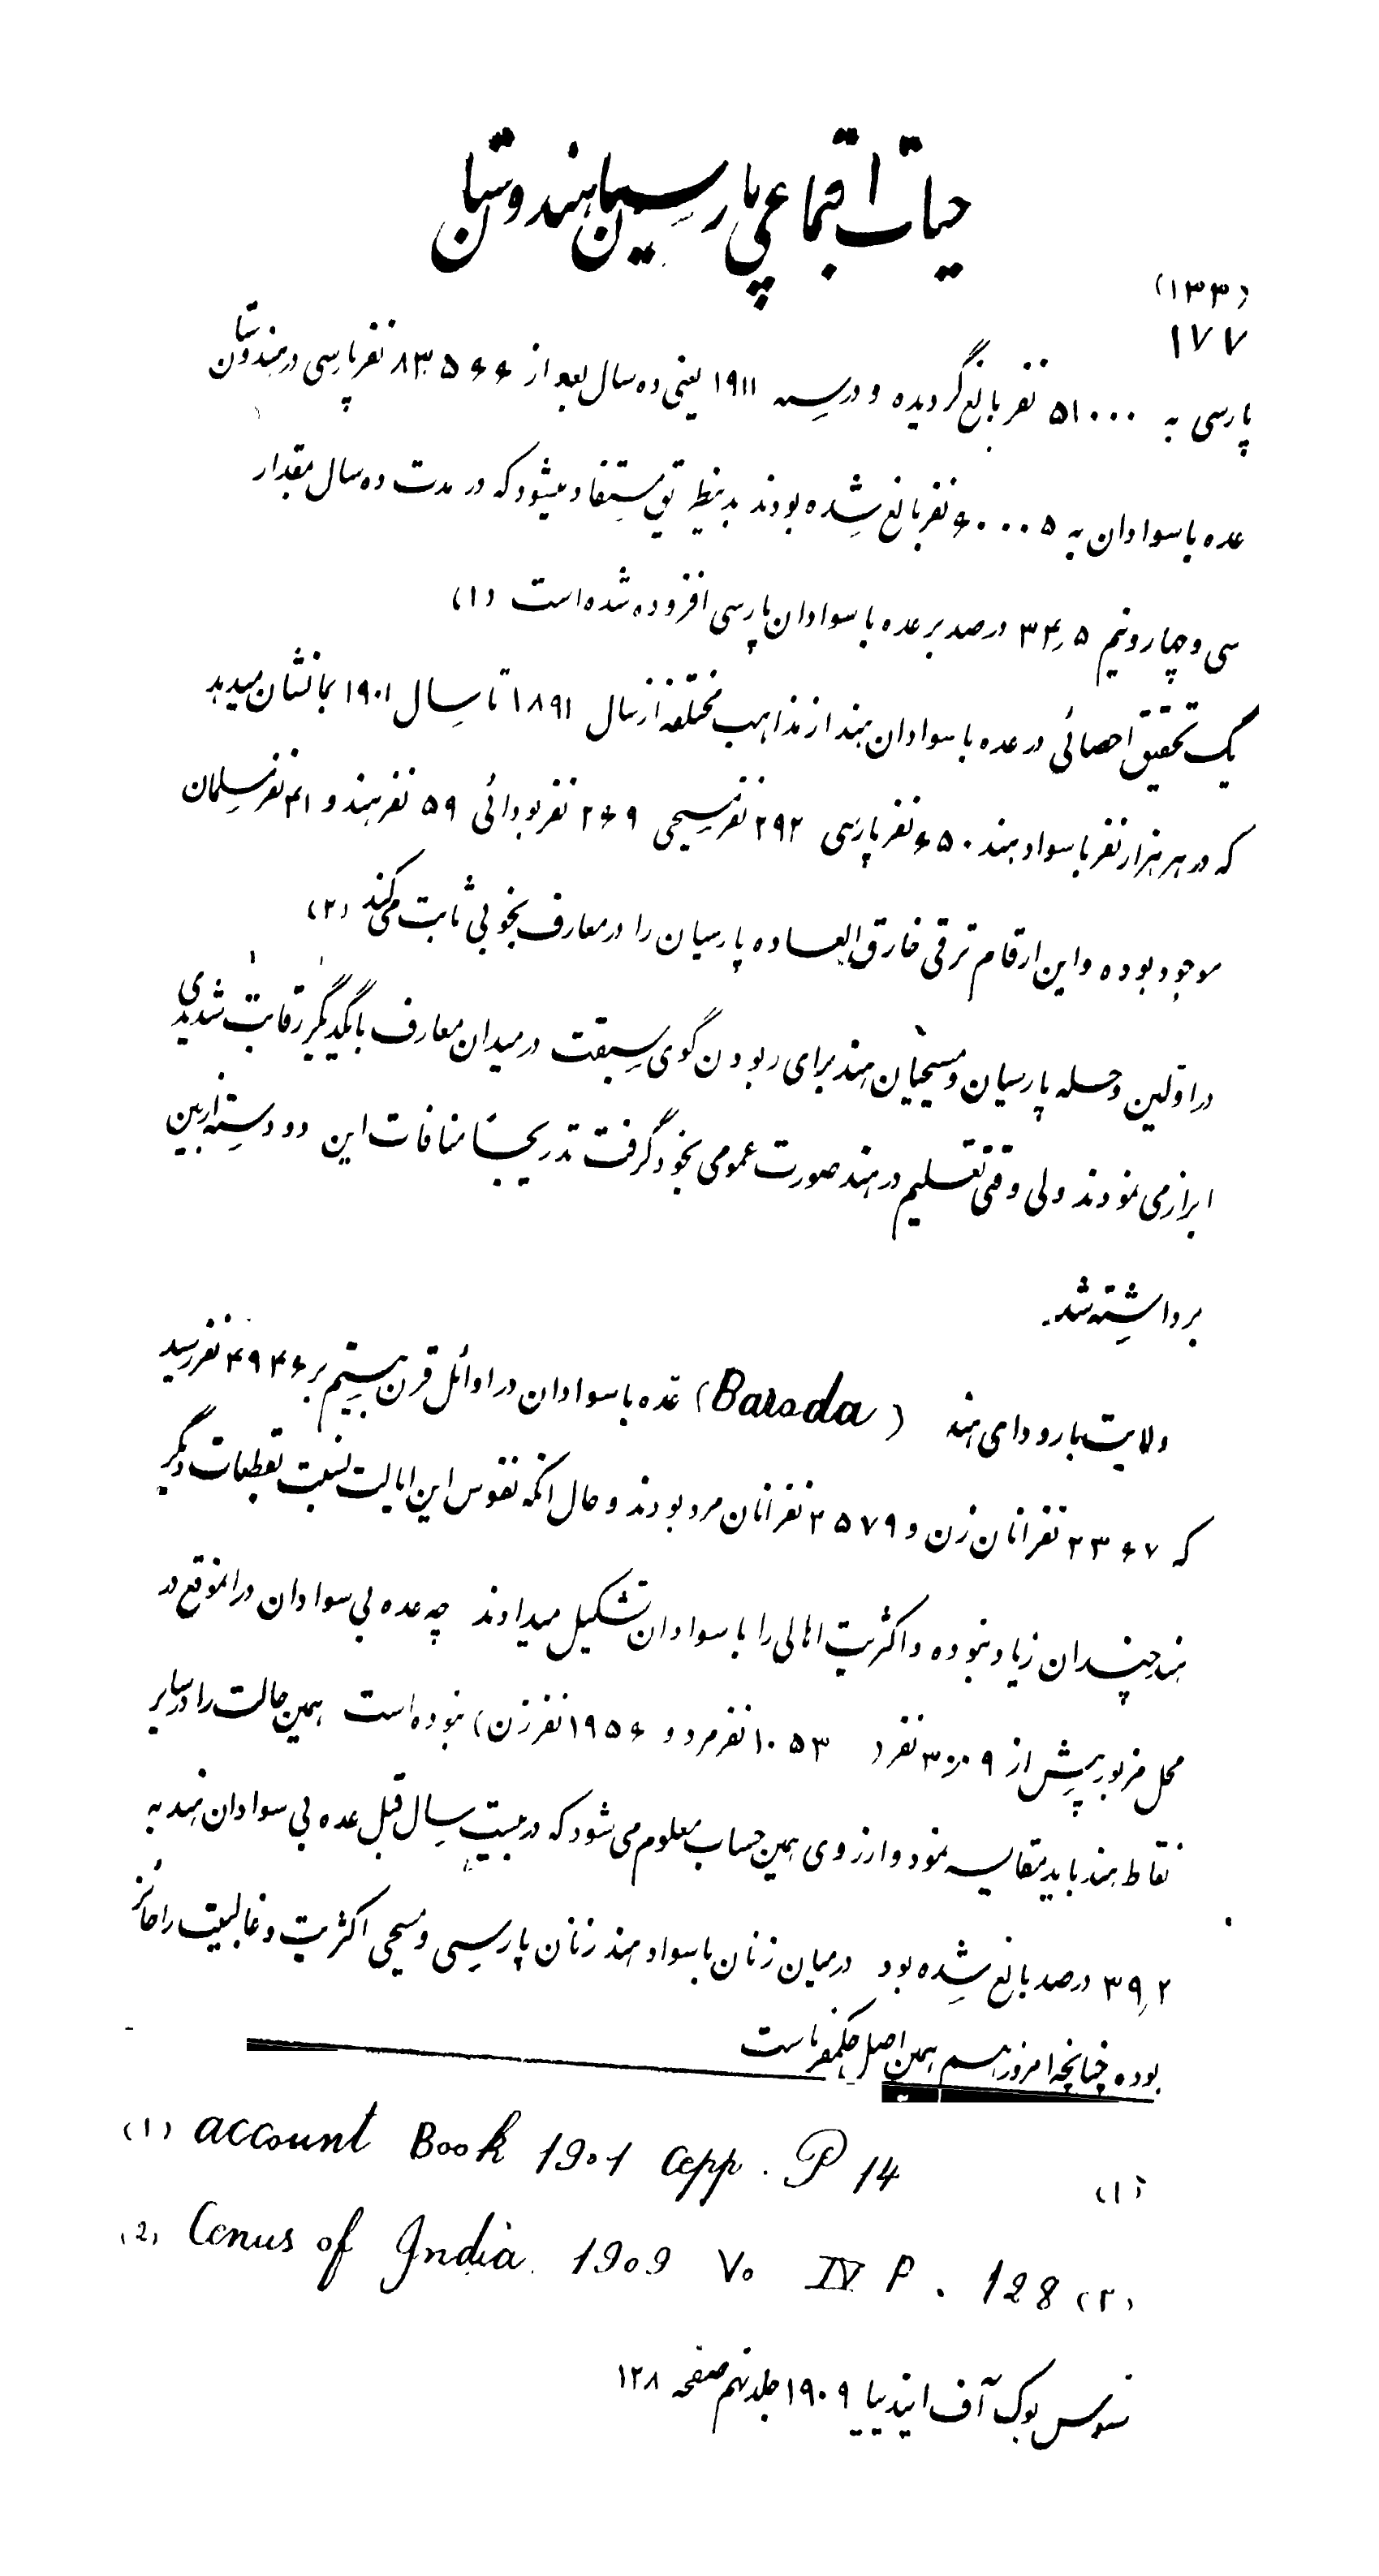 حیات اجتماعی پارسیان هندوستان
(۱۳۳)
۱۷۷
پارسی به ۵۱۰۰۰ نفر بالغ گردیده و در سنه ۱۹۱۱ یعنی ده سال بعد از ۸۳۵۶۶ نفر پارسی در هندوستان
عده باسوادان به ۶۰۰۰۵ نفر بالغ شده بودند بدینطریق مستفاد میشود که در مدت ده سال مقدار
سی و چهار و نیم ۳۴٫۵ درصد بر عده باسوادان پارسی افزوده شده است (۱)
یک تحقیق احصائی در عده باسوادان هند از مذاهب مختلفه از سال ۱۸۹۱ تا سال ۱۹۰۱ بما نشان میدهد
که در هر هزار نفر باسواد هند ۶۵۰ نفر پارسی ۲۹۲ نفر مسیحی ۲۶۹ نفر بودائی ۵۹ نفر هندو ۴۱ نفر مسلمان
موجود بوده و این ارقام ترقی خارق العاده پارسیان را در معارف بخوبی ثابت می کند (۲)
در اولین وحله پارسیان و مسیحیان هند برای ربودن گوی سبقت در میدان معارف با یکدیگر رقابت شدیدی
ابراز می نمودند ولی وقتی تعلیم در هند صورت عمومی بخود گرفت تدریجاً منافات این دو دسته از بین
برداشته شد.
ولایت بارودای هند (Baroda) عده باسوادان در اوائل قرن بیستم بر ۴۹۴۶ نفر رسید
که ۲۳۶۷ نفر انان زن و ۲۵۷۹ نفر انان مرد بودند و حال انکه نفوس این ایالت نسبت بقطعات دیگر
هند چندان زیاد نبوده و اکثریت اهالی را باسوادان تشکیل میدادند چه عده بی سوادان در انموقع در
محل مزبور بیش از ۳۰۰۹ نفر (۱۰۵۳ نفر مرد و ۱۹۵۶ نفر زن) نبوده است همین حالت را در سایر
نقاط هند باید مقایسه نمود و از روی همین حساب معلوم می شود که در بیست سال قبل عده بی سوادان هند به
۳۹٫۲ درصد بالغ شده بود در میان زنان باسواد هند زنان پارسی و مسیحی اکثریت و غالبیت را حائز
بوده چنانچه امروز هم همین اصل حکمفرماست
(۱) account Book 1901 app. P 14 (۱)
(2) Cenus of India. 1909 Vo IV P. 128 (۲)
سنوس بوک آف ایندییا ۱۹۰۹ جلد نهم صفحه ۱۲۸